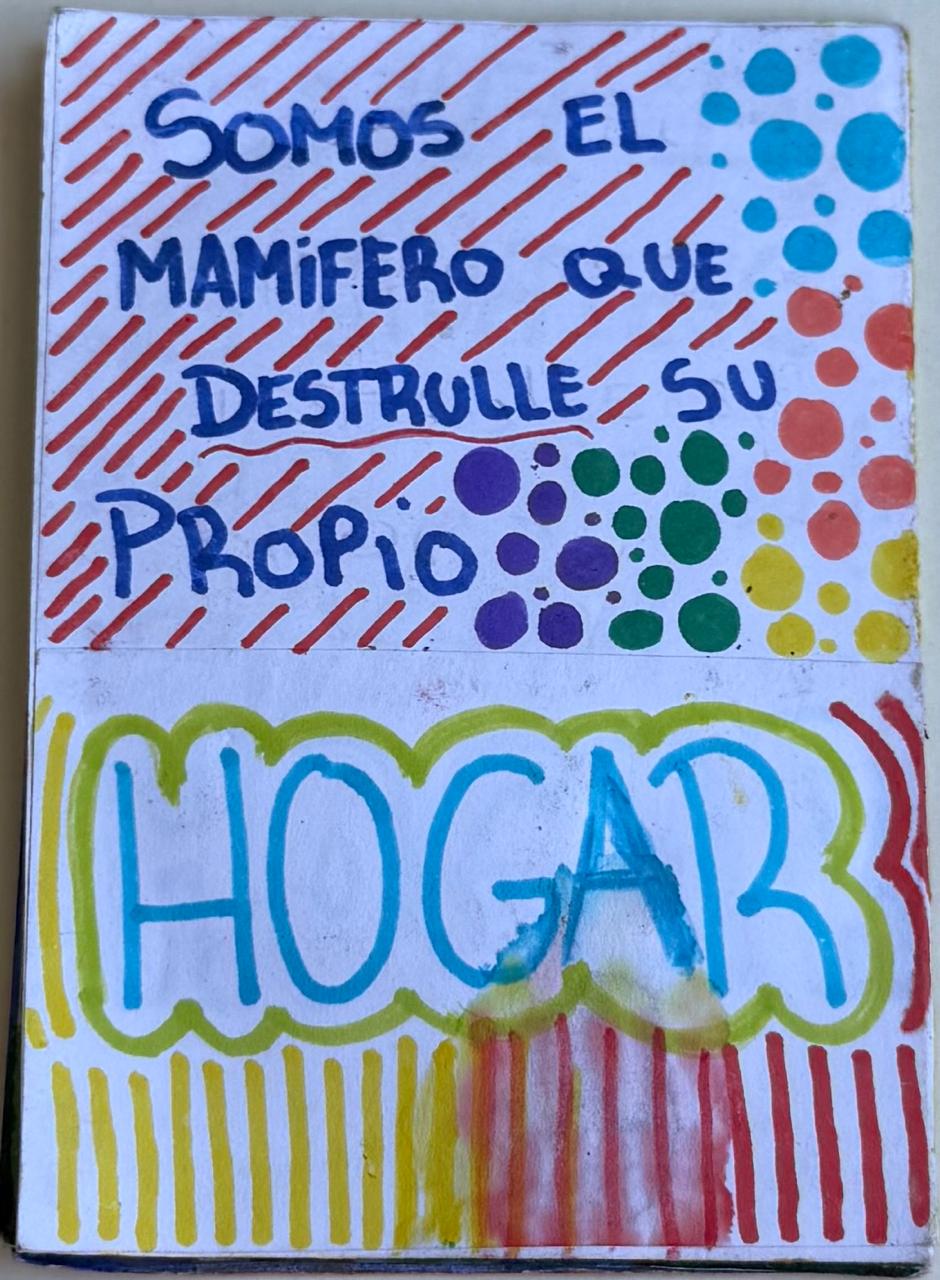 SOMOS EL
MAMiFERO QUE
DESTRULLE SU
PROPiO
HOGAR